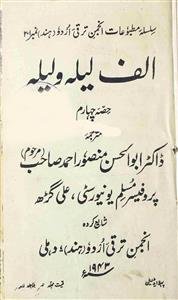 سلسلۂ مطبوعات انجمن ترقی اُردو (ہند) نمبر
الف لیلہ و لیلہ
حصّہ چہارم
مترجمہ
ڈاکٹر ابوالحسن منصور احمد صاحب (مرحوم)
پروفیسر مسلم یونیورسٹی، علی گڑھ
شایع کردہ
انجمن ترقی اُردو (ہند)، دہلی
۱۹۴۳ء